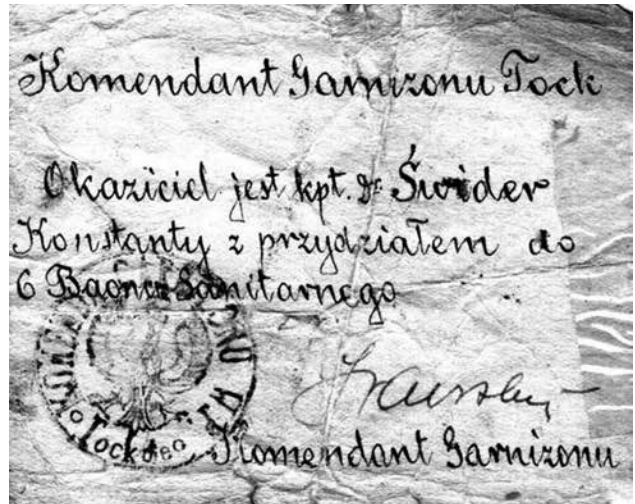 Komendant Garnizonu Tock
Okaziciel jest kpt. Dr Świder
Konstanty z przydziałem do
6 Baonu Sanitarnego
Komendant Garnizonu
Tockoje